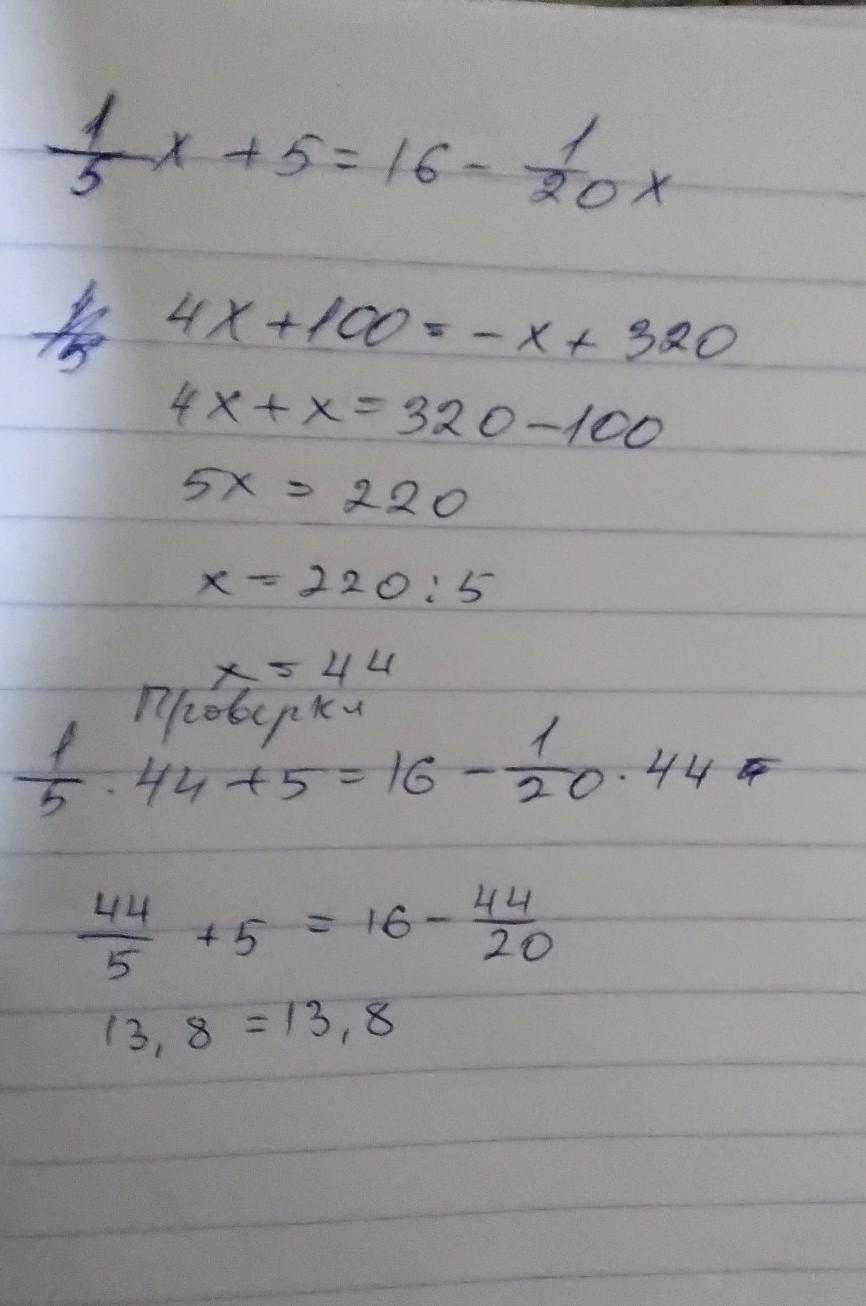 1/5 x + 5 = 16 - 1/20 x
4x + 100 = -x + 320
4x + x = 320 - 100
5x = 220
x = 220 : 5
x = 44
Проверка
1/5 · 44 + 5 = 16 - 1/20 · 44
44/5 + 5 = 16 - 44/20
13,8 = 13,8